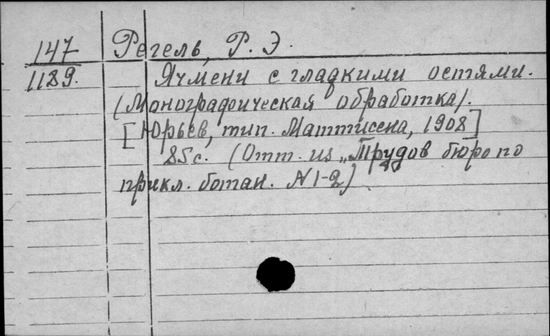 147 Регель, Р. Э.
1189. Ячмени с гладкими остями.
(Монографическая обработка).
[Юрьев, тип. Маттисена, 1908]
85с. (Отт. из „Трудов бюро по
прикл. ботан. N 1-2)